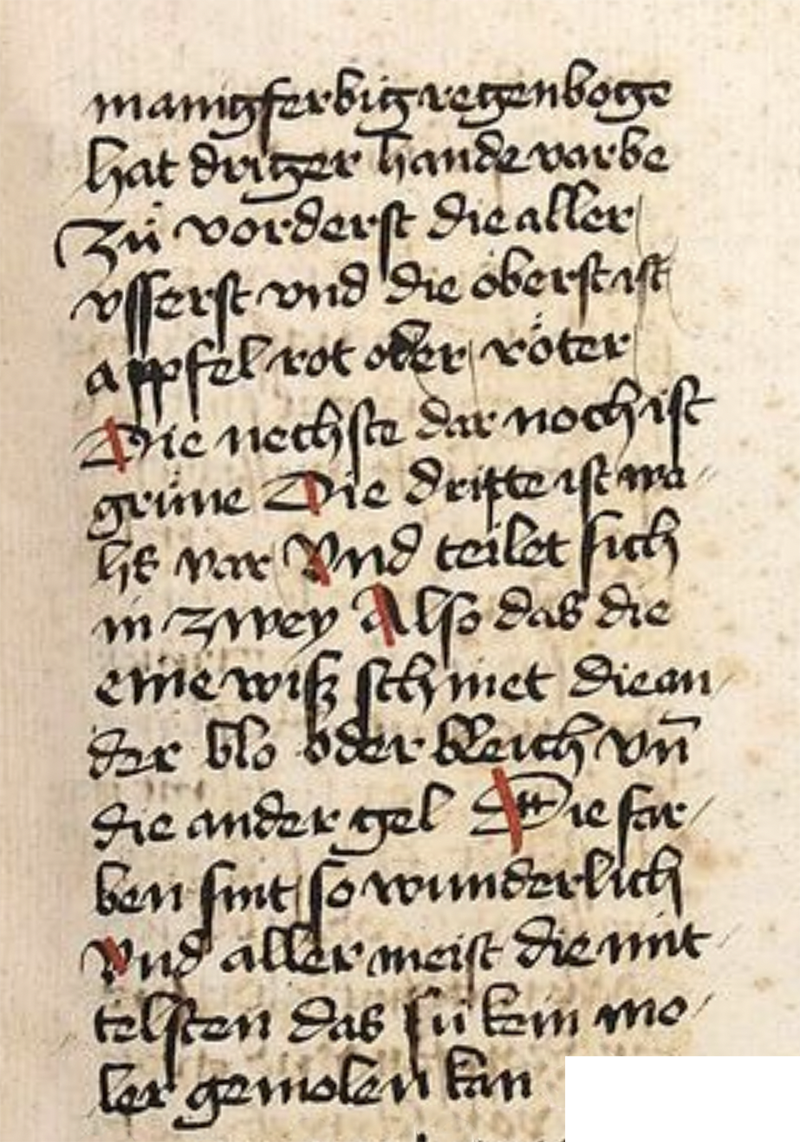 manigferbig regenboge
hat driger hande varbe
Zů vorderst die aller
vsserst vnd die öberst ist
appfel rot oder röter
Die nechste dar noch ist
grüne Die dritte ist wa
hs var Vnd teilet sich
in zwey Also das die
eine wiß schinet die an
der blo oder bleich vn̄
die ander gel Die far
ben sint so wunderlich
Vnd aller meist die mit
telsten das sü kein mo
ler gemolen kan